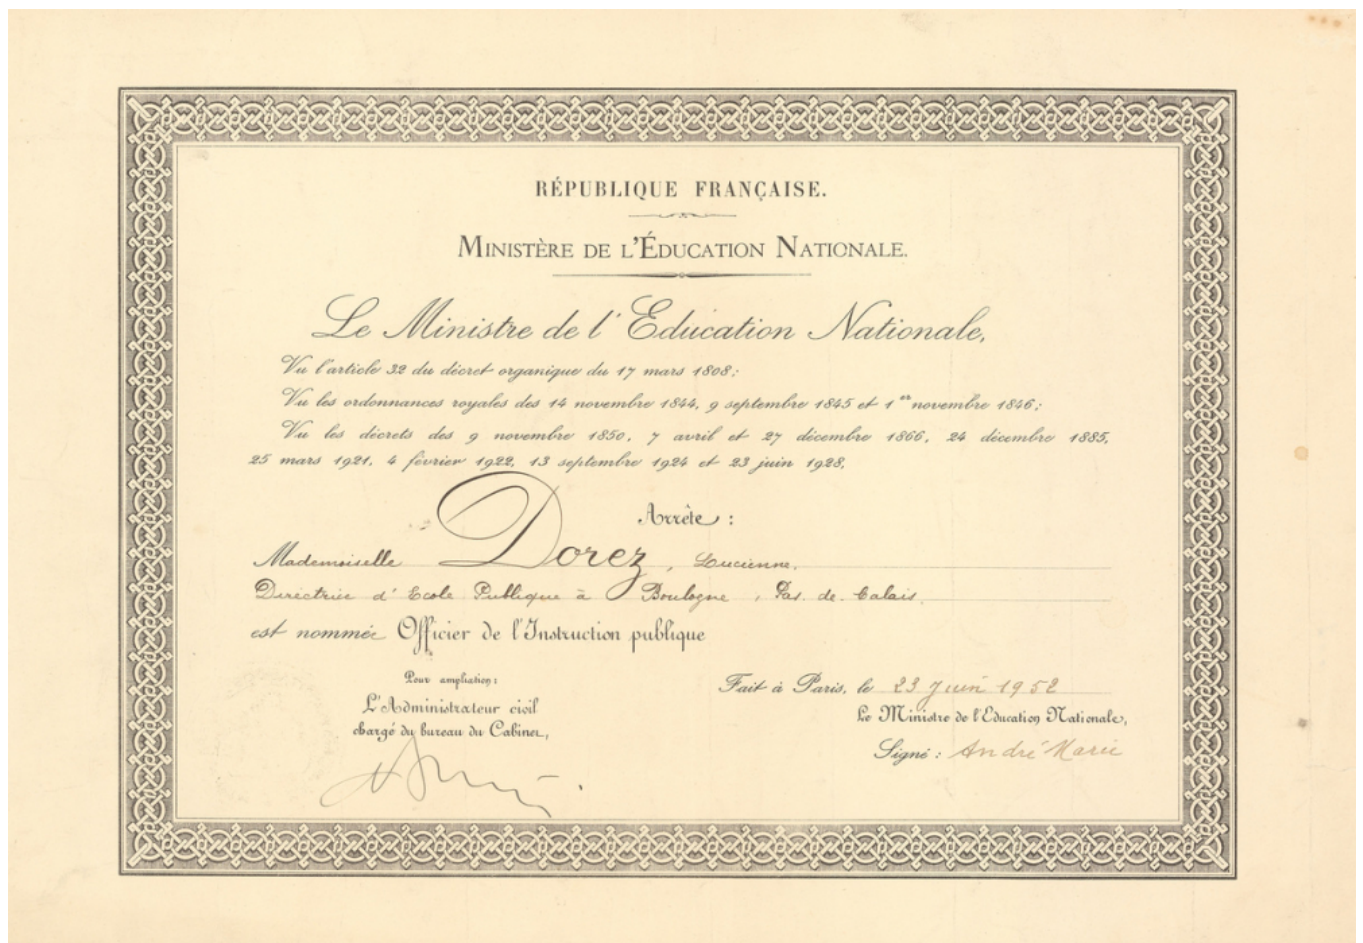 RÉPUBLIQUE FRANÇAISE.
MINISTÈRE DE L'ÉDUCATION NATIONALE.
Le Ministre de l'Education Nationale,
Vu l'article 32 du décret organique du 17 mars 1808;
Vu les ordonnances royales des 14 novembre 1844, 9 septembre 1845 et 1er novembre 1846;
Vu les décrets des 9 novembre 1850, 7 avril et 27 décembre 1866, 24 décembre 1885,
25 mars 1921, 4 février 1922, 13 septembre 1924 et 23 juin 1928,
Arrête :
Mademoiselle Dorez, Lucienne.
Directrice d'Ecole Publique à Boulogne, Pas. de. Calais.
est nommée Officier de l'Instruction publique
Pour ampliation :
L'Administrateur civil
chargé du bureau du Cabinet,
Fait à Paris, le 23 Juin 1952
Le Ministre de l'Education Nationale,
Signé : André Marie